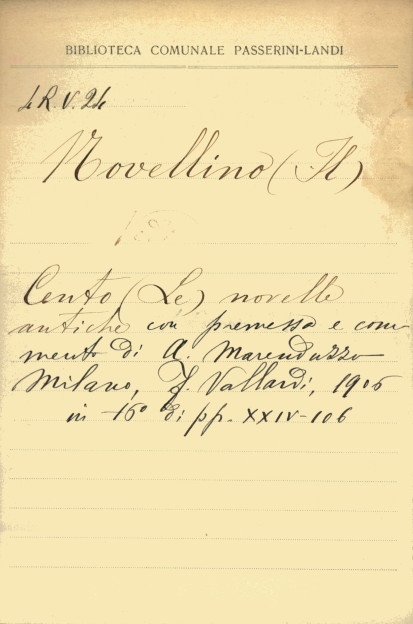 BIBLIOTECA COMUNALE PASSERINI-LANDI
4.R.V.24
Novellino (Il)
Cento (Le) novelle
antiche con premessa e com-
mento di A. Marenduzzo
Milano, F. Vallardi, 1906
in 16° di pp. XXIV-106